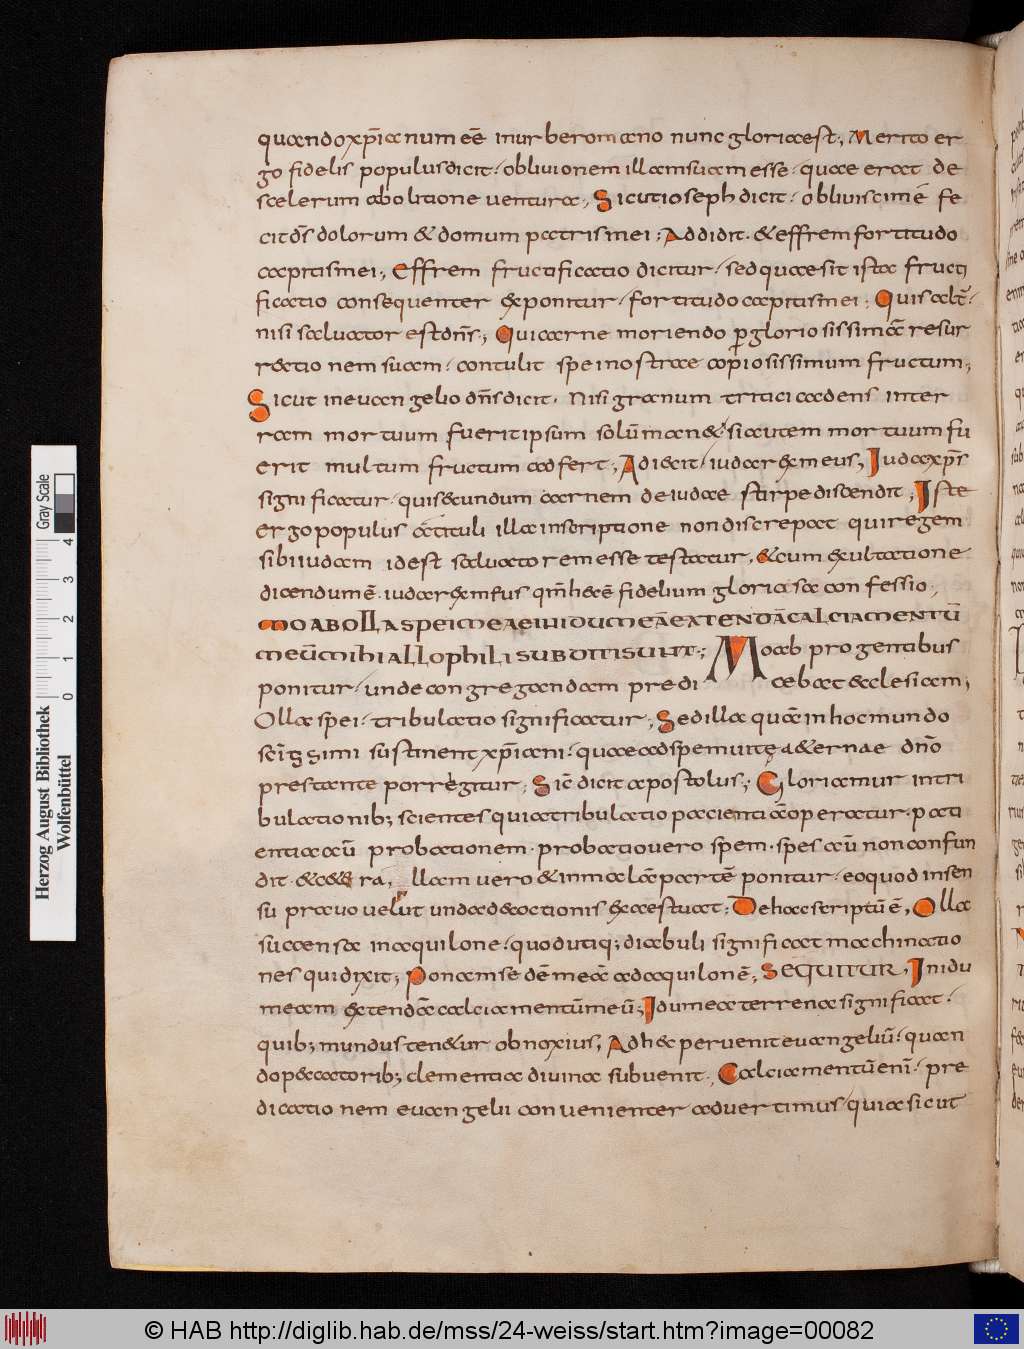 quando xp̄ianum eē in urbe romano nunc gloria est; Merito er
go fidelis populus dicit· oblivionem illam suam esse· quae erat de
scelerum abolitione ventura; Sicut ioseph dicit· oblivisci mē fe
cit d̄s dolorum & domum patris mei; Addidit· & effrem fortitudo
capitis mei; Effrem fructificatio dicitur· sed quae sit ista fructi
ficatio consequenter exponitur· fortitudo capitis mei; Quis
nisi salvator est dn̄s; Qui carne moriendo p gloriosissimā resur
r&ctionem suam· contulit spei nostrae copiosissimum fructum;
Sicut in evangelio dn̄s dicit· Nisi granum tritici cadens in ter
ram mortuum fuerit ipsum solū man&· si autem mortuum fu
erit multum fructum adfert; Adiecit· iuda rex meus; Iuda xp̄s
significatur· qui secundum carnem de iudae stirpe discendit; Iste
ergo populus a tituli illa inscriptione non discrepat qui regem
sibi iudam id est salvatorem esse testatur· & cum exultatione
dicendum ē· iuda rex meus qm̄ haec ē fidelium gloriosa confessio·
MOAB OLLA SPEI MEAE IN IDUMEĀ EXTENDĀ CALCIAMENTŪ
MEŪ MIHI ALLOPHILI SUBDITI SUNT; Moab pro gentibus
ponitur· unde congregandam predicebat ecclesiam;
Olla spei· tribulatio significatur; Sed illa quā in hoc mundo
sustinent xp̄iani· quae ad spem vitę a&ernae dn̄o
prestante porrigitur; Sic dicit apostolus; Gloriamur in tri
bulationib; scientes quia tribulatio pacientiā operatur· pati
entia aū probationem· probatio vero spem· spes aū non confun
dit· &c&era, llam vero & in malā partē ponitur· eo quod insen
su pravo velut unda decoctionis exaestuat; De hac scriptū ē, Olla
succensa in aquilone· quod utiq; diabuli significat machinatio
nes qui dixit; Ponam sedē meā ad aquilonē; SEQUITUR, In idu
meam extendā calciamentū meū; Idumea terrena significat·
quib; mundus ten&ur obnoxius; Ad haec pervenit evangeliū· quan
do peccatorib; clementia divina subvenit; Calciamentū enī· pre
dicationem evangelii convenienter advertimus· quia sicut
Herzog August Bibliothek
Wolfenbüttel
Gray Scale
0 1 2 3 4
© HAB http://diglib.hab.de/mss/24-weiss/start.htm?image=00082